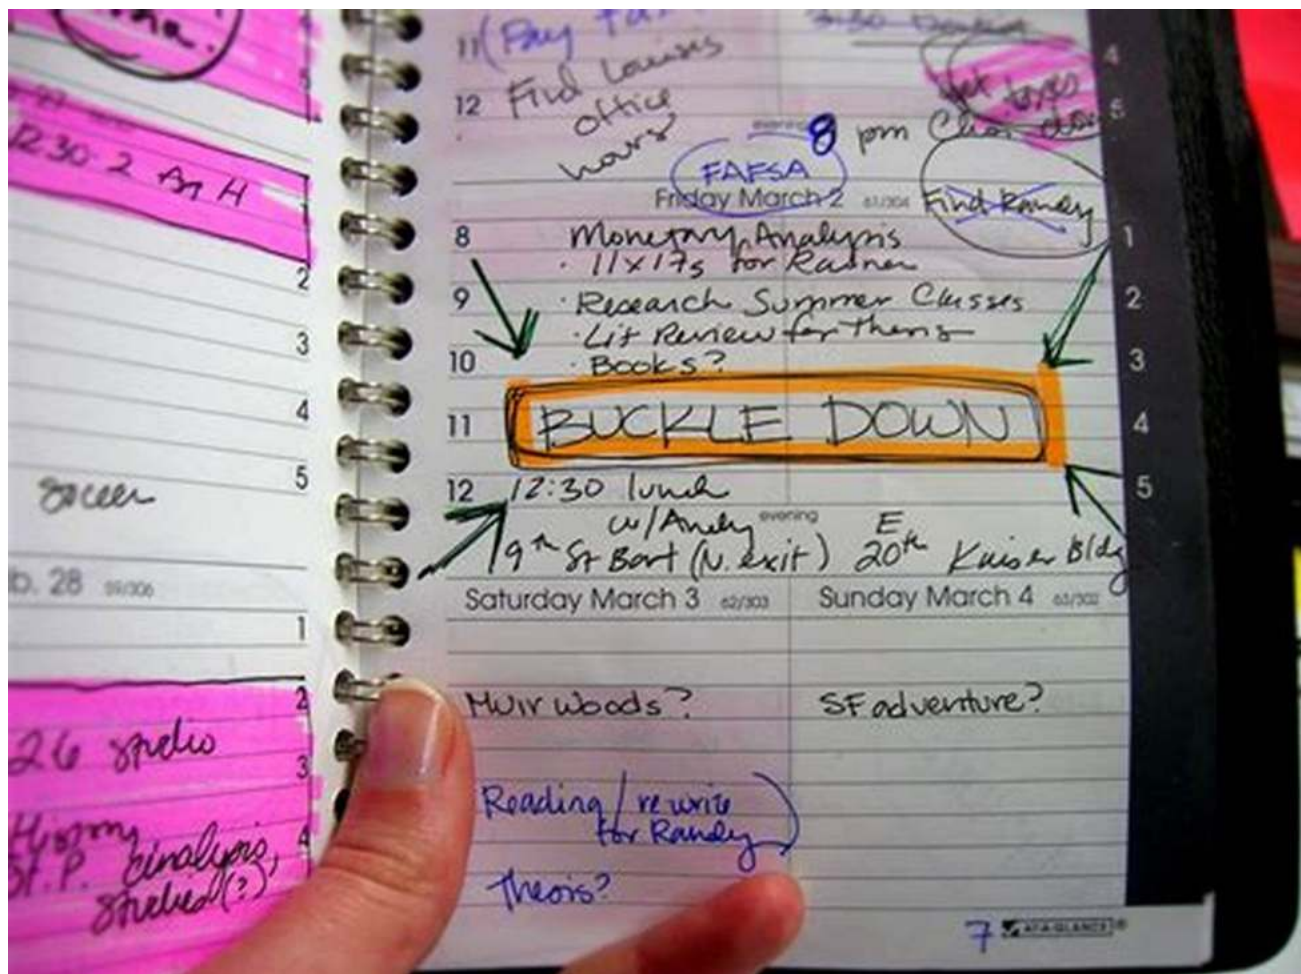 12:30-2
1
2
3
4
5
soccer
b. 28 59/306
1
2
26 studio
3
History
4
St. P. analysis,
studied(?)
11 (Pay
Find Louises
12 office
hours
4
5
evening 8 pm
FAFSA
Friday March 2 61/304 Find Randy
8 Monetary Analysis 1
· 11x17s for
9 · Research Summer Classes 2
· Lit Review for Thesis
10 · Books? 3
11 BUCKLE DOWN 4
12 12:30 lunch 5
w/Andy evening E
19th St Bart (N. exit) 20th Kaiser Bldg
Saturday March 3 62/303 Sunday March 4 63/302
Muir Woods? SF adventure?
Reading / rewrite
for Randy
Thesis?
7 AT-A-GLANCE®